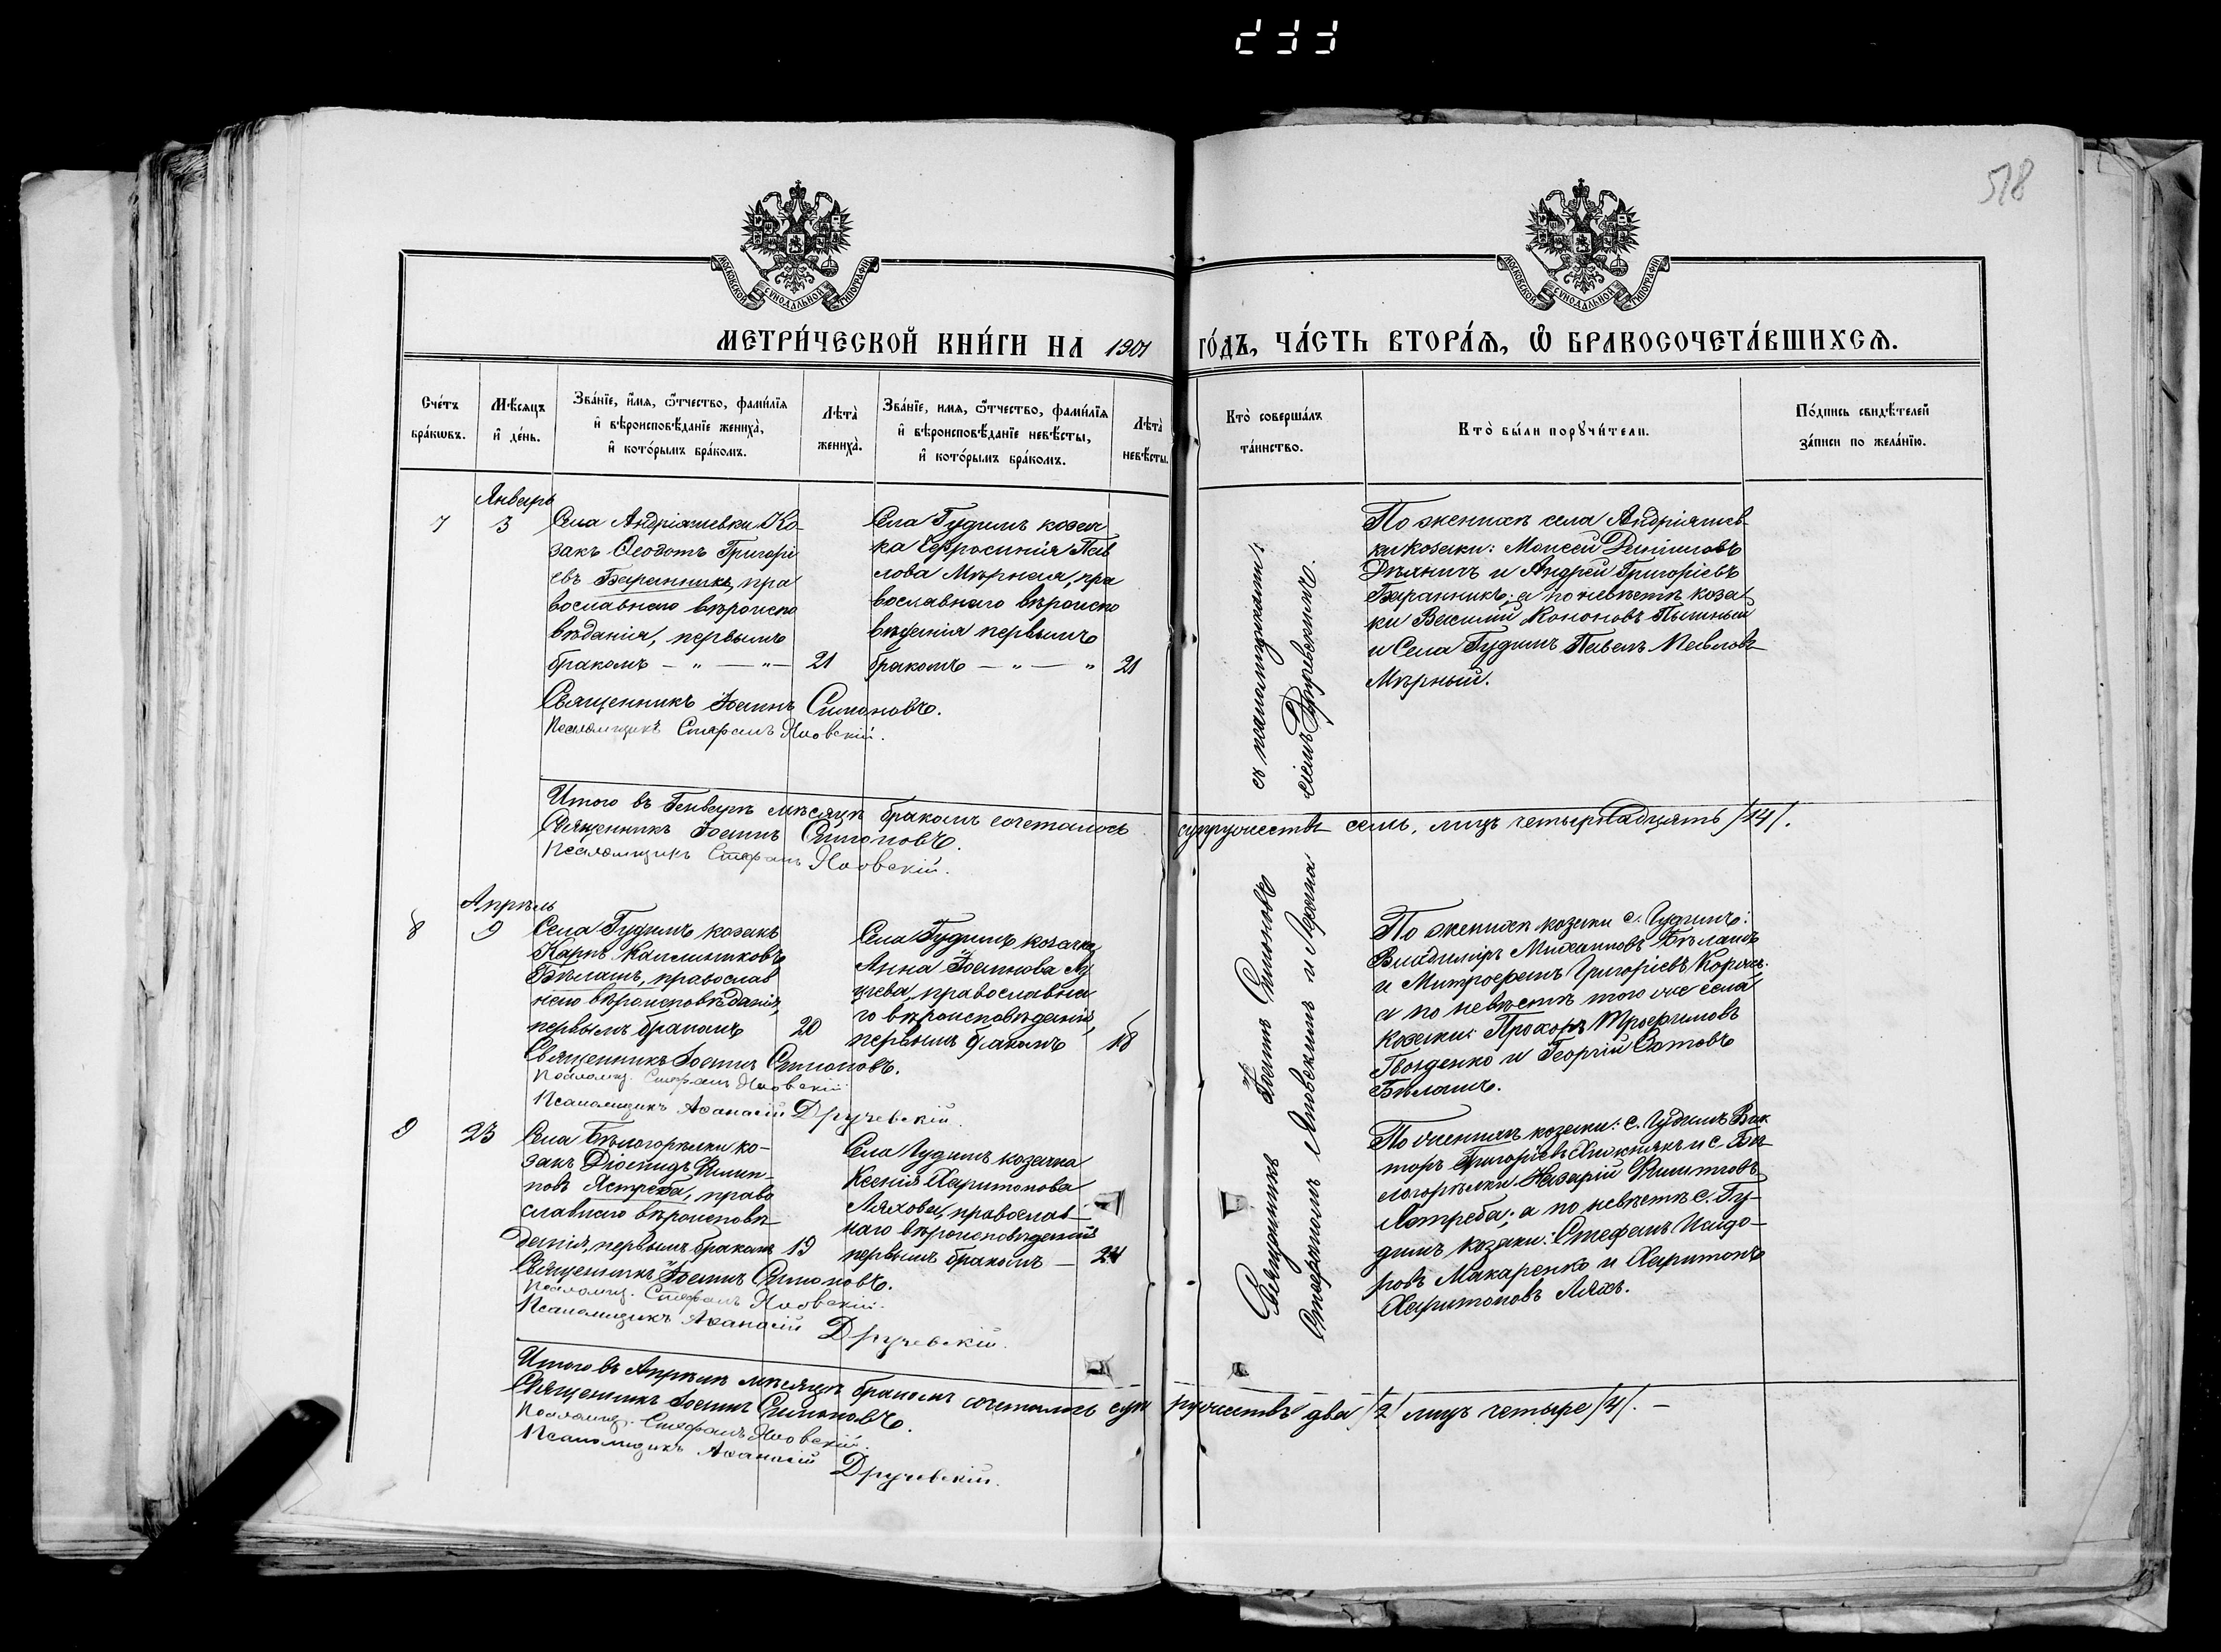 518
МОСКОВСКОЙ СУНОДАЛЬНОЙ ТИПОГРАФІИ
МОСКОВСКОЙ СУНОДАЛЬНОЙ ТИПОГРАФІИ
МЕТРИ́ЧЕСКОЙ КНИ́ГИ НА 1901 ГО́ДЪ, ЧА́СТЬ ВТОРА́Ѧ, Ѽ БРАКОСОЧЕТА́ВШИХСѦ.
Сче́тъ
бра́кѡвъ.
Мѣ́сѧцъ
и҆ де́нь.
Зва́нїе, и҆́мѧ, ѻ҆́тчество, фами́лїѧ
и҆ вѣроисповѣ́данїе жениха̀,
и҆ кото́рымъ бра́комъ.
Лѣ́та̀
жениха̀.
Зва́нїе, имѧ, ѻ҆́тчество, фами́лїѧ
и҆ вѣроисповѣ́данїе невѣ́сты,
и҆ кото́рымъ бра́комъ.
Лѣта̀
невѣ́сты.
Кто̀ соверша́лъ
та́инство.
Кто̀ бы́ли порꙋчи́тели.
По́дпись свидѣ́телей
за́писи по жела́нїю.
Январь
7
3
Села Андріяшевки Ко-
закъ Ѳеодотъ Григорі
евъ Баранникъ, пра
вославнаго вѣроиспо
вѣданія, первымъ
бракомъ — " — " — 21
Села Гудимъ козач
ка Евфросинія Пав
лова Мѣрная, пра
вославнаго вѣроиспо
вѣданія первымъ
бракомъ — " — " 21
По женихѣ села Андріяшев-
ки козаки: Моисей Даніиловъ
и Андрей Григоріевъ
Баранникъ; а по невѣстѣ коза
ки Василій Кононовъ
и Села Гудимъ Павелъ Павловъ
Мѣрный.
Священникъ Іоаннъ Симоновъ.
Псаломщикъ Стефанъ Яновскій.
Итого въ Генварѣ мѣсяцѣ бракомъ сочеталось супружествъ семь, лицъ четырнадцать /14/.
Священникъ Іоаннъ Симоновъ.
Псаломщикъ Стефанъ Яновскій.
Апрѣль
8
9
Села Гудимъ козакъ
Карпъ Каллиниковъ
Бѣлашъ, православ
наго вѣроисповѣданія,
первымъ бракомъ 20
Села Гудимъ козачка
Анна Іоаннова Лу
цева, православна
го вѣроисповѣданія,
первымъ бракомъ 18
По женихѣ козаки с. Гудимъ:
Владиміръ Михаиловъ Бѣлашъ
и Митрофанъ Григоріевъ
а по невѣстѣ того же села
козаки: Прохоръ Трофимовъ
Гвозденко и Георгій
Бѣлашъ.
Священникъ Іоаннъ Симоновъ.
Псаломщ. Стефанъ Яновскій.
Псаломщикъ Аѳанасій Дручевскій.
9
23
Села Бѣлогорѣлки ко-
закъ Діомидъ Филип-
повъ Ястреба, право
славнаго вѣроисповѣ
данія, первымъ бракомъ 19
Села Гудимъ козачка
Ксенія Харитонова
Ляхова, православ
наго вѣроисповѣданія
первымъ бракомъ — 24
По женихѣ козаки: с. Гудимъ Вик
торъ Григоріевъ Хижнякъ и с. Бѣ-
логорѣлки Назарій Филипповъ
Ястреба; а по невѣстѣ с. Гу-
димъ козаки: Стефанъ Исидо-
ровъ Макаренко и Харитонъ
Харитоновъ Ляхъ.
Священникъ Іоаннъ Симоновъ.
Псаломщ. Стефанъ Яновскій.
Псаломщикъ Аѳанасій Дручевскій.
Священникъ Іоаннъ Симоновъ съ псаломщиками:
Стефаномъ Яновскимъ и Аѳана сіемъ Дручевскимъ.
Итого въ Апрѣлѣ мѣсяцѣ бракомъ сочеталось супружествъ два /2/ лицъ четыре /4/. —
Священникъ Іоаннъ Симоновъ.
Псаломщ. Стефанъ Яновскій.
Псаломщикъ Аѳанасій Дручевскій.